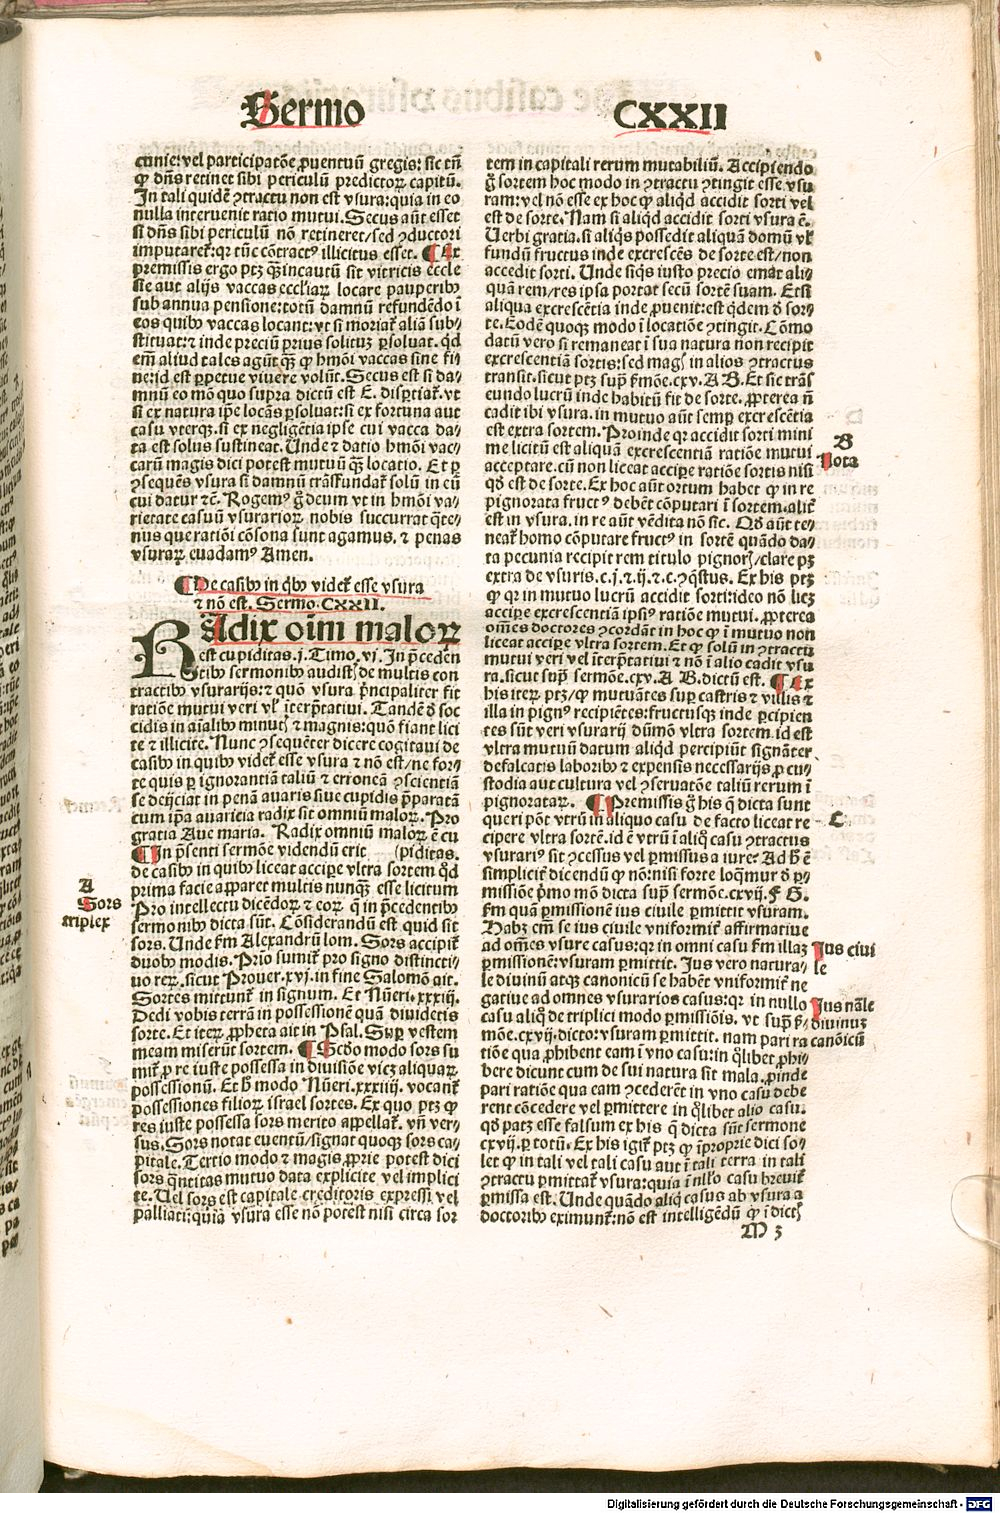 Sermo CXXII
cunie: vel participatõe ꝓuentuũ gregis: sic tñ
ꝙ dñs retinet sibi periculũ predictoꝝ capitũ.
In tali quidẽ ꝯtractu non est vsura: quia in eo
nulla interuenit ratio mutui. Secus aũt esset
si dñs sibi periculũ nõ retineret/ sed ꝯductori
imputaret̃: qꝛ tũc cõtractꝰ illicitus esset. ¶ Ex
premissis ergo ptꝫ ꝙ̃ incautũ sit vitricis eccle
sie aut alijs vaccas eccliaꝝ locare pauperibꝰ
sub annua pensione: totũ damnũ refundẽdo ĩ
eos quibꝰ vaccas locant: vt si moriat̃ aliã sub⸗
stituat: ⁊ inde preciũ prius solituꝫ ꝑsoluat. qd̃
em̃ aliud tales agũt ꝙ̃ ꝙ hmõi vaccas sine fi⸗
ne: id est ꝑpetue viuere volũt. Secus est si da⸗
mnũ eo mõ quo supra dictũ est E. disꝑtiat̃. vt
si ex natura ip̃e locãs ꝑsoluat: si ex fortuna aut
casu vterqꝫ. si ex negligẽtia ipse cui vacca da⸗
ta est solus sustineat. Unde ⁊ datio hmõi vac⸗
carũ magis dici potest mutuũ ꝙ̃ locatio. Et ꝑ
ꝯsequẽs vsura si damnũ trãsfundat̃ solũ in eũ
cui datur ⁊c̃. Rogemꝰ g̃ deum vt in hmõi va⸗
rietate casuũ vsurarioꝝ nobis succurrat q̃te⸗
nus que ratiõi cõsona sunt agamus. ⁊ penas
vsuraꝝ euadamꝰ Amen.
¶ De casibꝰ in q̃bꝰ videt̃ esse vsura
⁊ nõ est. Sermo. CXXII.
RAdix oĩm maloꝝ
est cupiditas. j. Timo. vj. In p̃ceden
tibꝰ sermonibꝰ audistꝭ de multis con
tractibꝰ vsurarijs: ⁊ quõ vsura p̃ncipaliter fit
ratiõe mutui veri vl̓ ĩterp̃tatiui. Tandẽ ð soc
cidis in aĩalibꝰ minutꝭ ⁊ magnis: quõ fiant lici
te ⁊ illicite. Nunc ꝯsequẽter dicere cogitaui de
casibꝰ in quibꝰ videt̃ esse vsura ⁊ nõ est/ ne for⸗
te quis ꝑ ignorantiam taliũ ⁊ erroneã ꝯscientiã
se deijciat in penã auaris siue cupidis p̃paratã
cum ip̃a auaricia radix sit omniũ maloꝝ. Pro
gratia Aue maria. Radix omniũ maloꝝ ẽ cu
¶ In p̃senti sermõe videndũ erit (piditas.
de casibꝰ in quibꝰ liceat acciꝑe vltra sortem qd̃
prima facie apparet multis nunqꝫ esse licitum
Pro intellectu dicẽdoꝝ ⁊ eoꝝ q̃ in p̃cedentibꝰ
sermonibꝰ dicta sũt. Cõsiderandũ est quid sit
sors. Unde ẜm Alexandrũ lom. Sors accipit̃
duobꝰ modis. Prĩo sumit̃ pro signo distincti⸗
uo reꝝ. sicut Prouer. xvj. in fine Salomõ ait.
Sortes mittunt̃ in signum. Et Nũeri. xxxiij.
Dedi vobis terrã in possessionẽ quã diuidetis
sorte. Et iteꝝ ꝓpheta ait in Psal. Suꝑ vestem
meam miserũt sortem. ¶ Scðo modo sors su
mit̃ ꝓ re iuste possessa in diuisiõe viceꝫ aliquaꝝ
possessionũ. Et h̃ modo Nũeri. xxxiiij. vocant̃
possessiones filioꝝ israel sortes. Ex quo ptꝫ ꝙ
res iuste possessa sors merito appellat̃. vñ ver⸗
sus. Sors notat euentũ/ signat quoqꝫ sors ca⸗
pitale. Tertio modo ⁊ magis ꝓprie potest dici
sors q̃ntitas mutuo data explicite vel implici
te. Uel sors est capitale creditoris expressi vel
palliati: quia vsura esse nõ potest nisi circa sor
A
Sors
triplex
tem in capitali rerum mutabiliũ. Accipiendo
g̃ sortem hoc modo in ꝯtractu ꝯtingit esse vsu
ram: vel nõ esse ex hoc ꝙ aliqd accidit sorti vel
est de sorte. Nam si aliqd accidit sorti vsura ẽ.
Uerbi gratia. si aliq̃s possedit aliquã domũ vl̓
fundũ fructus inde excrescẽs de sorte est/ non
accedit sorti. Unde siq̃s iusto precio emat ali⸗
quã rem/ res ipsa portat secũ sortẽ suam. Et si
aliqua excrescẽtia inde ꝓuenit: est q̃dem ð sor⸗
te. Eodẽ quoqꝫ modo ĩ locatiõe ꝯtingit. Cõmo
datũ vero si remaneat ĩ sua natura non recipit
excrescentiã sortis: sed magꝭ in alios ꝯtractus
transit. sicut ptꝫ supͣ ẜmõe. cxv. A B. Et sic trãs
eundo lucrũ inde habitũ fit de sorte. ꝓpterea ñ
cadit ibi vsura. in mutuo aũt semꝑ excrescẽtia
est extra sortem. Proinde qꝛ accidit sorti mini
me licitũ est aliquã excrescentiã ratiõe mutui
acceptare. cũ non liceat acciꝑe ratiõe sortis nisi
qð est de sorte. Ex hoc aũt ortum habet ꝙ in re
pignorata fructꝰ debẽt cõputari ĩ sortem. alit̃
est in vsura. in re aũt vẽdita nõ sic. Qð aũt te⸗
neat̃ homo cõputare fructꝰ in sortẽ quãdo da⸗
ta pecunia recipit rem titulo pignorꝭ/ clare pꝫ
extra de vsuris. c. j. ⁊ ij. ⁊ c. ꝯq̃stus. Ex his ptꝫ
ꝙ qꝛ in mutuo lucrũ accidit sorti: ideo nõ licꝫ
acciꝑe excrescentiã ipsiꝰ ratiõe mutui. ꝓpterea
oẽs doctores ꝯcordãt in hoc ꝙ ĩ mutuo non
liceat acciꝑe vltra sortem. Et ꝙ solũ in ꝯtractu
mutui veri vel ĩterp̃tatiui ⁊ nõ ĩ alio cadit vsu
ra. sicut supͣ sermõe. cxv. A B. dictũ est. ¶ Ex
his iteꝝ ptꝫ/ ꝙ mutuãtes suꝑ castris ⁊ villis ⁊
illa in pignꝰ recipiẽtes: fructusqꝫ inde ꝑcipien
tes sũt veri vsurarij dũmõ vltra sortem. id est
vltra mutuũ datum aliqd ꝑcipiũt signãter
defalcatis laboribꝰ ⁊ expensis necessarijs ꝓ cu⸗
stodia aut cultura vel ꝯseruatõe taliũ rerum ĩ
pignorataꝝ. ¶ Premissis g̃ his q̃ dicta sunt
queri põt vtrũ in aliquo casu de facto liceat re⸗
cipere vltra sortẽ. id ẽ vtrũ ĩ aliq̃ casu ꝯtractus
vsurariꝰ sit ꝯcessus vel ꝑmissus a iure: Ad h̃ ẽ
simplicit̃ dicendũ ꝙ nõ: nisi forte loqm̃ur ð ꝑ⸗
missiõe p̃mo mõ dicta supͣ sermõe. cxvij. F G.
ẜm quã ꝑmissionẽ ius ciuile ꝑmittit vsuram.
Habꝫ em̃ se ius ciuile vniformit̃ affirmatiue
ad om̃es vsure casus: qꝛ in omni casu ẜm illaꝫ
ꝑmissionẽ: vsuram ꝑmittit. Jus vero natura⸗
le diuinũ atqꝫ canonicũ se habẽt vniformit̃ ne
gatiue ad omnes vsurarios casus: qꝛ in nullo
casu aliq̃ de triplici modo ꝑmissiõis. vt supͣ ẜ⸗
mõe. cxvij. dicto: vsuram ꝑmittit. nam pari ra
tiõe qua ꝓhibent eam ĩ vno casu: in q̃libet ꝓhi⸗
bere dicunt cum de sui natura sit mala. ꝓinde
pari ratiõe qua eam ꝯcederẽt in vno casu debe
rent cõcedere vel ꝑmittere in q̃libet alio casu.
qð patꝫ esse falsum ex his q̃ dicta sũt sermone
cxvij. ꝑ totũ. Ex his igit̃ ptꝫ ꝙ ĩproprie dici so⸗
let ꝙ in tali vel tali casu aut ĩ tali terra in tali
ꝯtractu ꝑmittat̃ vsura: quia ĩ nllo casu breuit̃
ꝑmissa est. Unde quãdo aliq̃ casus ab vsura a
doctoribꝰ eximunt̃: nõ est intelligẽdũ ꝙ ĩ dictꝭ
B
Nota
C
Jus ciui
le
Jus nãle
diuinuꝫ
canõicũ
M 3
Digitalisierung gefördert durch die Deutsche Forschungsgemeinschaft - DFG